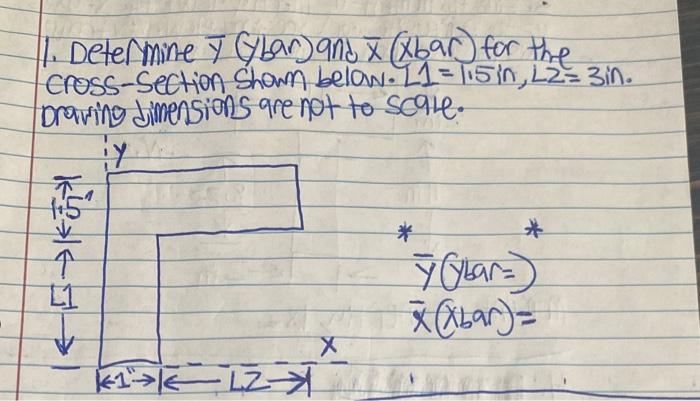 1. Determine ȳ (ybar) and x̄ (xbar) for the
cross-section shown below. L1 = 1.5in, L2 = 3in.
Drawing dimensions are not to scale.
y
1.5"
* *
L1
ȳ (ybar = )
x̄ (xbar) =
x
1"
L2